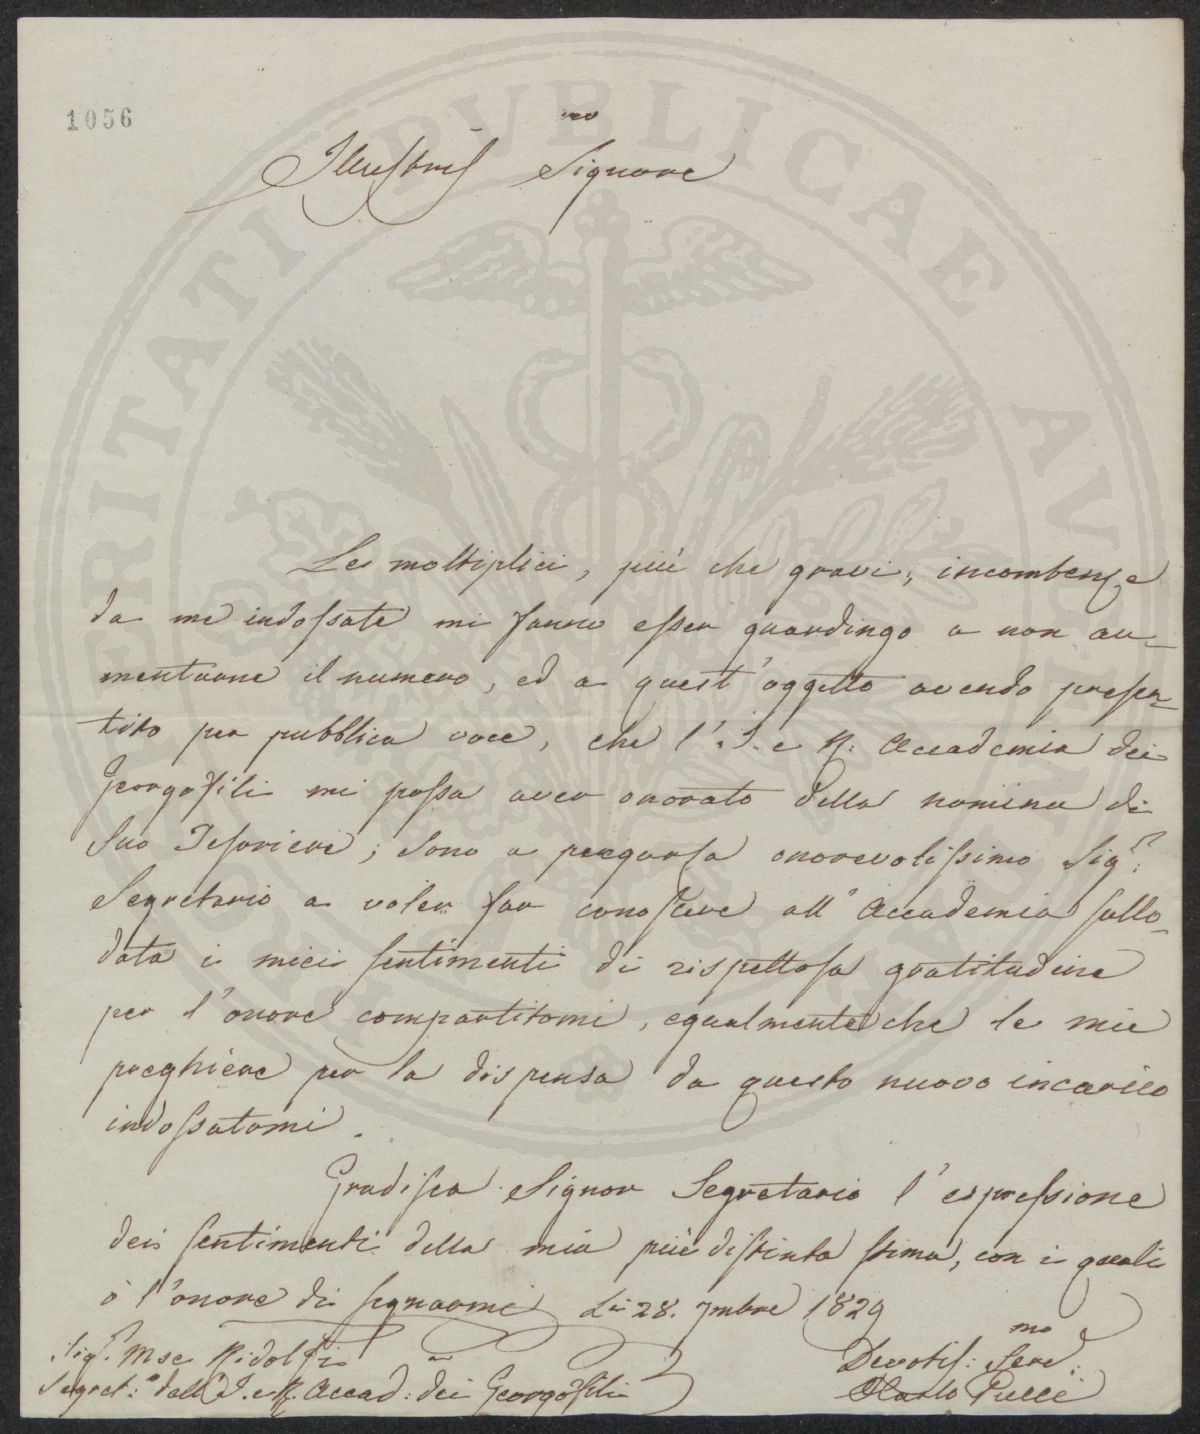 1056
Illustris^mo Signore
Le moltiplici, più che gravi, incombenze
da me indossate mi fanno esser guardingo a non au-
mentarne il numero, ed a quest'oggetto avendo presen-
tito per pubblica voce, che l'I. e R. Accademia dei
Georgofili mi possa aver onorato della nomina di
Suo Tesoriere; sono a pregarla onorevolissimo Sig^r:
Segretario a voler far conoscere all'Accademia sullo-
data i miei sentimenti di rispettosa gratitudine
per l'onore compartitomi, egualmente che le mie
preghiere per la dispensa da questo nuovo incarico
indossatomi.
Gradisca Signor Segretario l'espressione
dei sentimenti della mia più distinta stima, con i quali
ò l'onore di segnarmi Li 28. 7mbre 1829
Sig^r. Mse Ridolfi
Segret:^o dell'I. e R. Accad: dei Georgofili
Devotis:^mo Serv:
Carlo Pucci
PUBLICAE